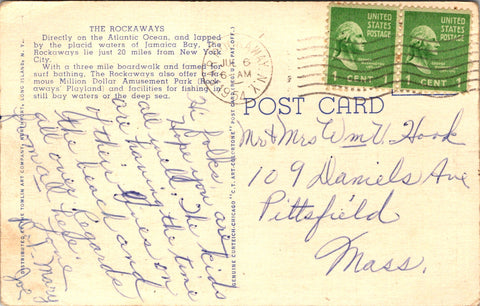 THE ROCKAWAYS
Directly on the Atlantic Ocean, and lapped
by the placid waters of Jamaica Bay. The
Rockaways lie just 20 miles from New York
City.
With a three mile boardwalk and famed for
surf bathing. The Rockaways also offer a fa-
mous Million Dollar Amusement Park (Rock-
aways' Playland) and facilities for fishing in
still bay waters or the deep sea.
Hi folks,
Hope you are
all well. The kids
are having the time
of their lives on
the beach and
all over. Regards
from all. Love
Mary
DISTRIBUTED BY THE TOMLIN ART COMPANY, NORTHPORT, LONG ISLAND, N. Y.
GENUINE CURTEICH-CHICAGO "C.T. ART-COLORTONE" POST CARD (REG. U.S. PAT. OFF.)
N.Y.
6
AM
1954
UNITED
STATES
POSTAGE
1 CENT 1
UNITED
STATES
POSTAGE
1 CENT 1
POST CARD
Mr & Mrs Wm V. Hook
109 Daniels Ave
Pittsfield
Mass.